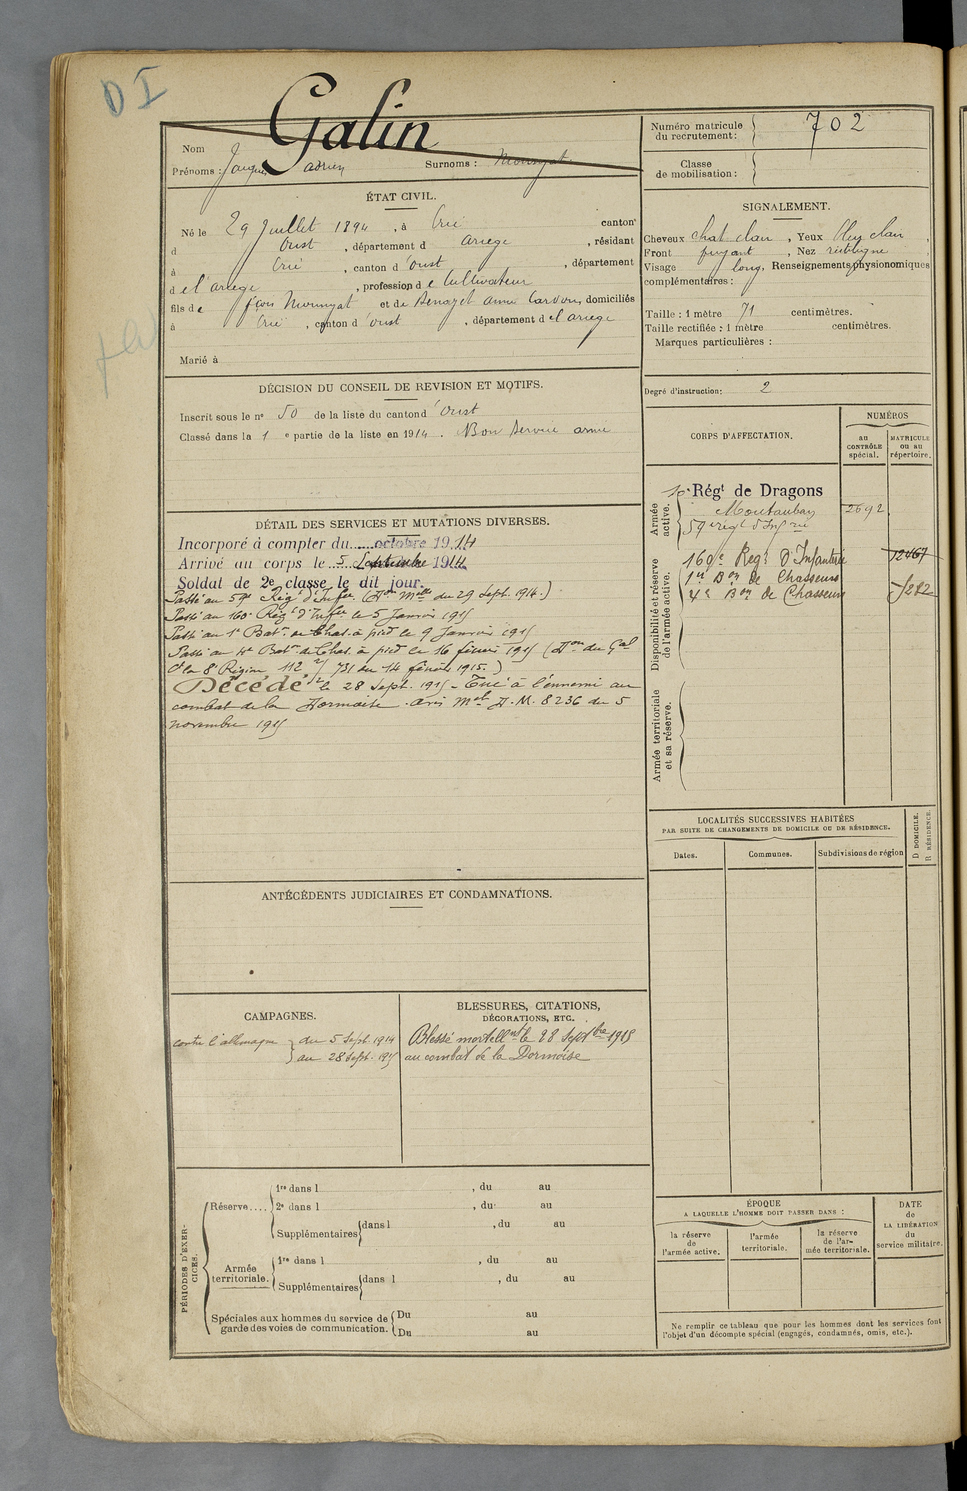 D I
Galin
Nom
Prénoms : Jacques Adrien Surnoms : Mounyat
Numéro matricule du recrutement : 702
Classe de mobilisation :
ÉTAT CIVIL.
Né le 29 Juillet 1894, à Ercé canton
d Oust, département d Ariège, résidant
à Ercé, canton d'Oust, département
d el ariege, profession de Cultivateur
fils de fçois Mounyat et de anne Cardon, domiciliés
à Ercé, canton d'oust, département del ariege
Marié à
SIGNALEMENT.
Cheveux chat clair, Yeux clair,
Front fuyant, Nez rectiligne
Visage long, Renseignements physionomiques
complémentaires :
Taille : 1 mètre 71 centimètres.
Taille rectifiée : 1 mètre centimètres.
Marques particulières :
Degré d'instruction : 2
DÉCISION DU CONSEIL DE REVISION ET MOTIFS.
Inscrit sous le nº 50 de la liste du canton d'Oust
Classé dans la 1 e partie de la liste en 1914. Bon service armé
DÉTAIL DES SERVICES ET MUTATIONS DIVERSES.
Incorporé à compter du octobre 1914
Arrivé au corps le 5 Septembre 1914
Soldat de 2e classe le dit jour.
Passé au 59e Régt d'Infie (Don Mlle du 29 Sept. 1914.)
Passé au 160e Régt d'Infie le 5 Janvier 1915
Passé au 1er Batn de Chas. à pied le 9 Janvier 1915
Passé au 4e Batn de Chas. à pied le 16 février 1915 (Don du Gal
Ct la 8e Région 112 2/ 731 du 14 février 1915.)
Décédé le 28 Sept. 1915 - Tué à l'ennemi au
combat de la Dormoise. Avis Mel D.M. 8236 du 5
novembre 1915
CORPS D'AFFECTATION.
NUMÉROS
AU CONTRÔLE spécial.
MATRICULE ou au répertoire.
Armée active.
10e Régt de Dragons
Montauban 2692
59e régt d'Infrie
Disponibilité et réserve de l'armée active.
160e Regt d'Infanterie 12467
1er Bon de Chasseurs
4e Bon de Chasseurs 5282
Armée territoriale et sa réserve.
LOCALITÉS SUCCESSIVES HABITÉES
PAR SUITE DE CHANGEMENTS DE DOMICILE OU DE RÉSIDENCE.
Dates. Communes. Subdivisions de région
D DOMICILE.
R RÉSIDENCE.
ANTÉCÉDENTS JUDICIAIRES ET CONDAMNATIONS.
CAMPAGNES.
contre l'allemagne } du 5 Sept. 1914
au 28 Sept. 1915
BLESSURES, CITATIONS,
DÉCORATIONS, ETC.
Blessé mortellnt le 28 Septbre 1915
au combat de la Dormoise
PÉRIODES D'EXERCICES.
Réserve.... 1re dans l , du au
2e dans l , du au
Supplémentaires dans l , du au
Armée territoriale. 1re dans l , du au
Supplémentaires dans l , du au
Spéciales aux hommes du service de Du au
garde des voies de communication. Du au
ÉPOQUE
A LAQUELLE L'HOMME DOIT PASSER DANS :
la réserve de l'armée active.
l'armée territoriale.
la réserve de l'armée territoriale.
DATE de LA LIBÉRATION du service militaire.
Ne remplir ce tableau que pour les hommes dont les services font
l'objet d'un décompte spécial (engagés, condamnés, omis, etc.).